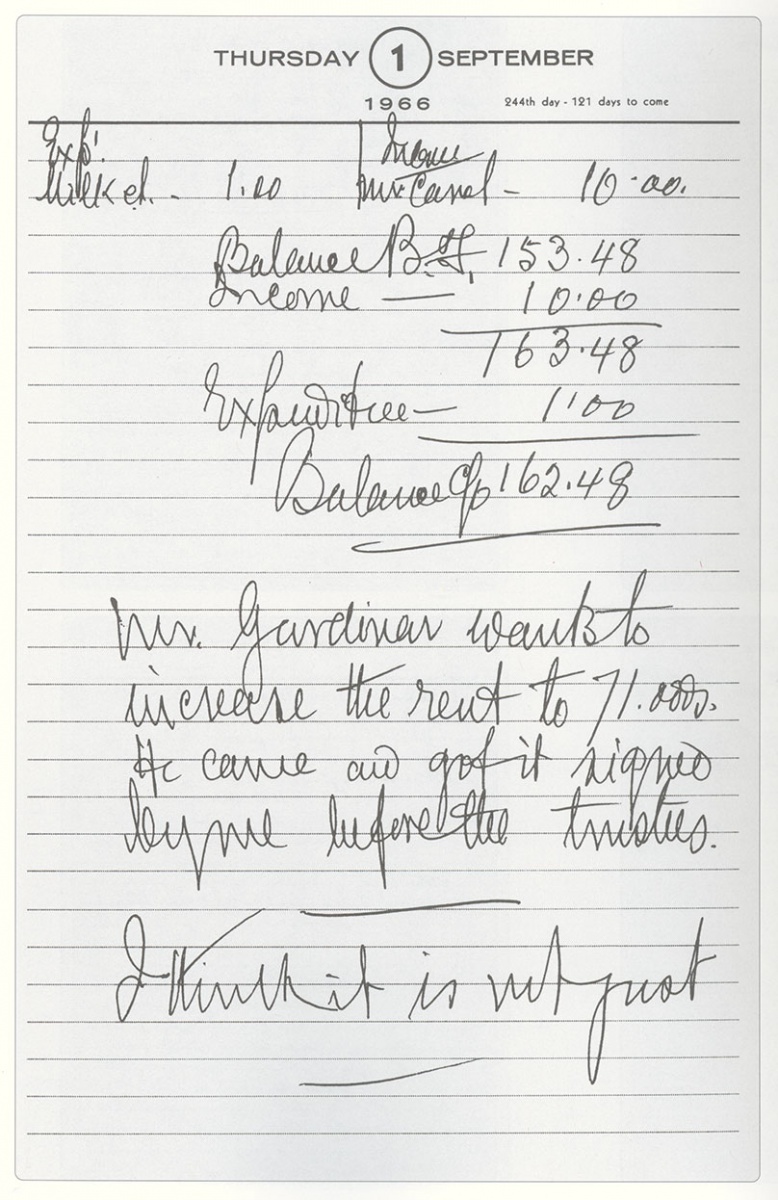 THURSDAY 1 SEPTEMBER
1966 244th day - 121 days to come
Exp: Income
Milk et. - 1.00 Mr. Carol - 10.00.
Balance B.F. 153.48
Income — 10.00
163.48
Expanditure — 1.00
Balance 162.48
Mr. Gardiner wants to
increase the rent to 71.
He came and got it signed
by me before the trustees.
I think it is not just